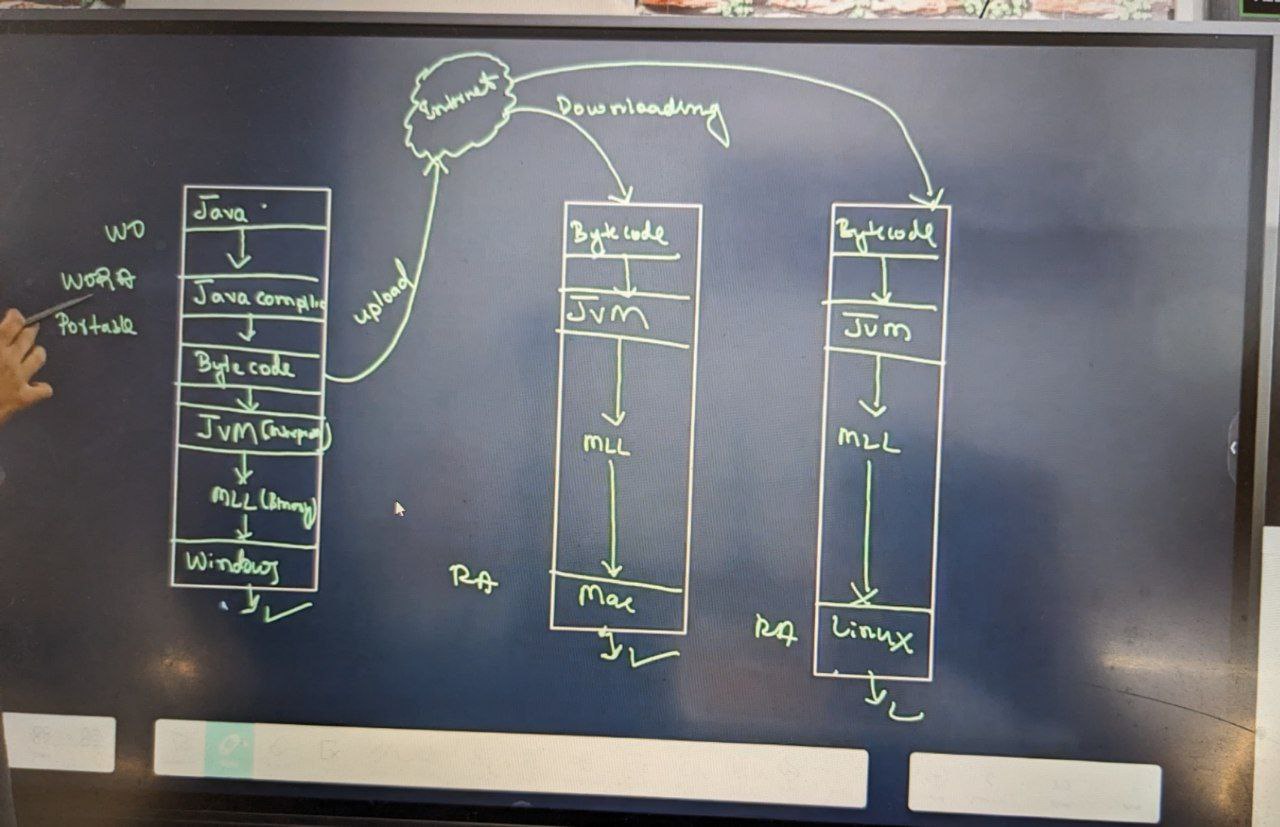 Internet
Downloading
upload
WO
WORA
Portable
Java
Java compiler
Byte code
JVM (Interpreter)
MLL (Binary)
Windows
Byte code
JVM
MLL
RA
Mac
Byte code
JVM
MLL
RA
Linux